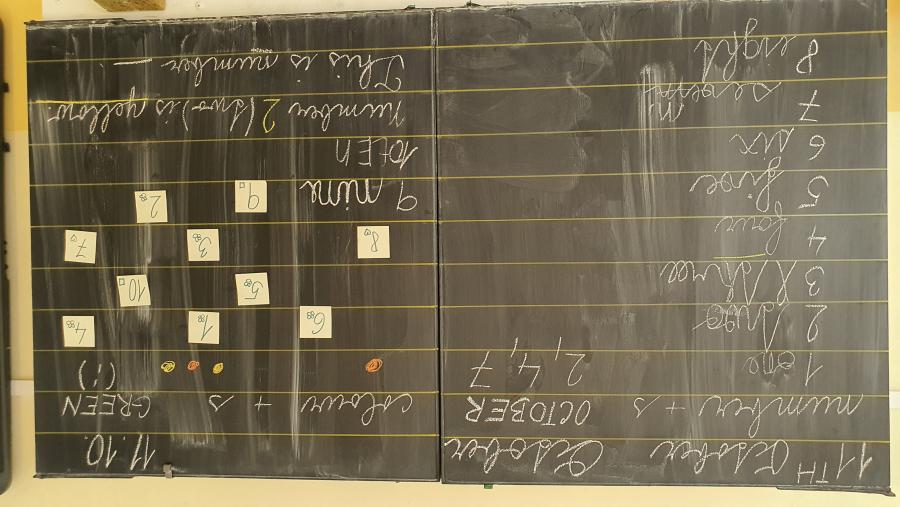 11TH October October
number + s OCTOBER
1 one 2, 4, 7
2 two
3 three
4 four
5 five
6 six
7 seven
8 eight
11.10.
colour + s GREEN (!)
6 1 4
5 10
8 3 7
9 2
9 nine
10 tEn
number 2 (two) is yellow.
This is number —